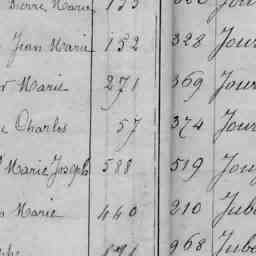 Pierre Marie
Jean Marie 152 328 Jour
Marie 271 369 Jour
Charles 57 374 Jour
Marie Joseph 588 519 Jou
Marie 440 210 Jube
968 Jube